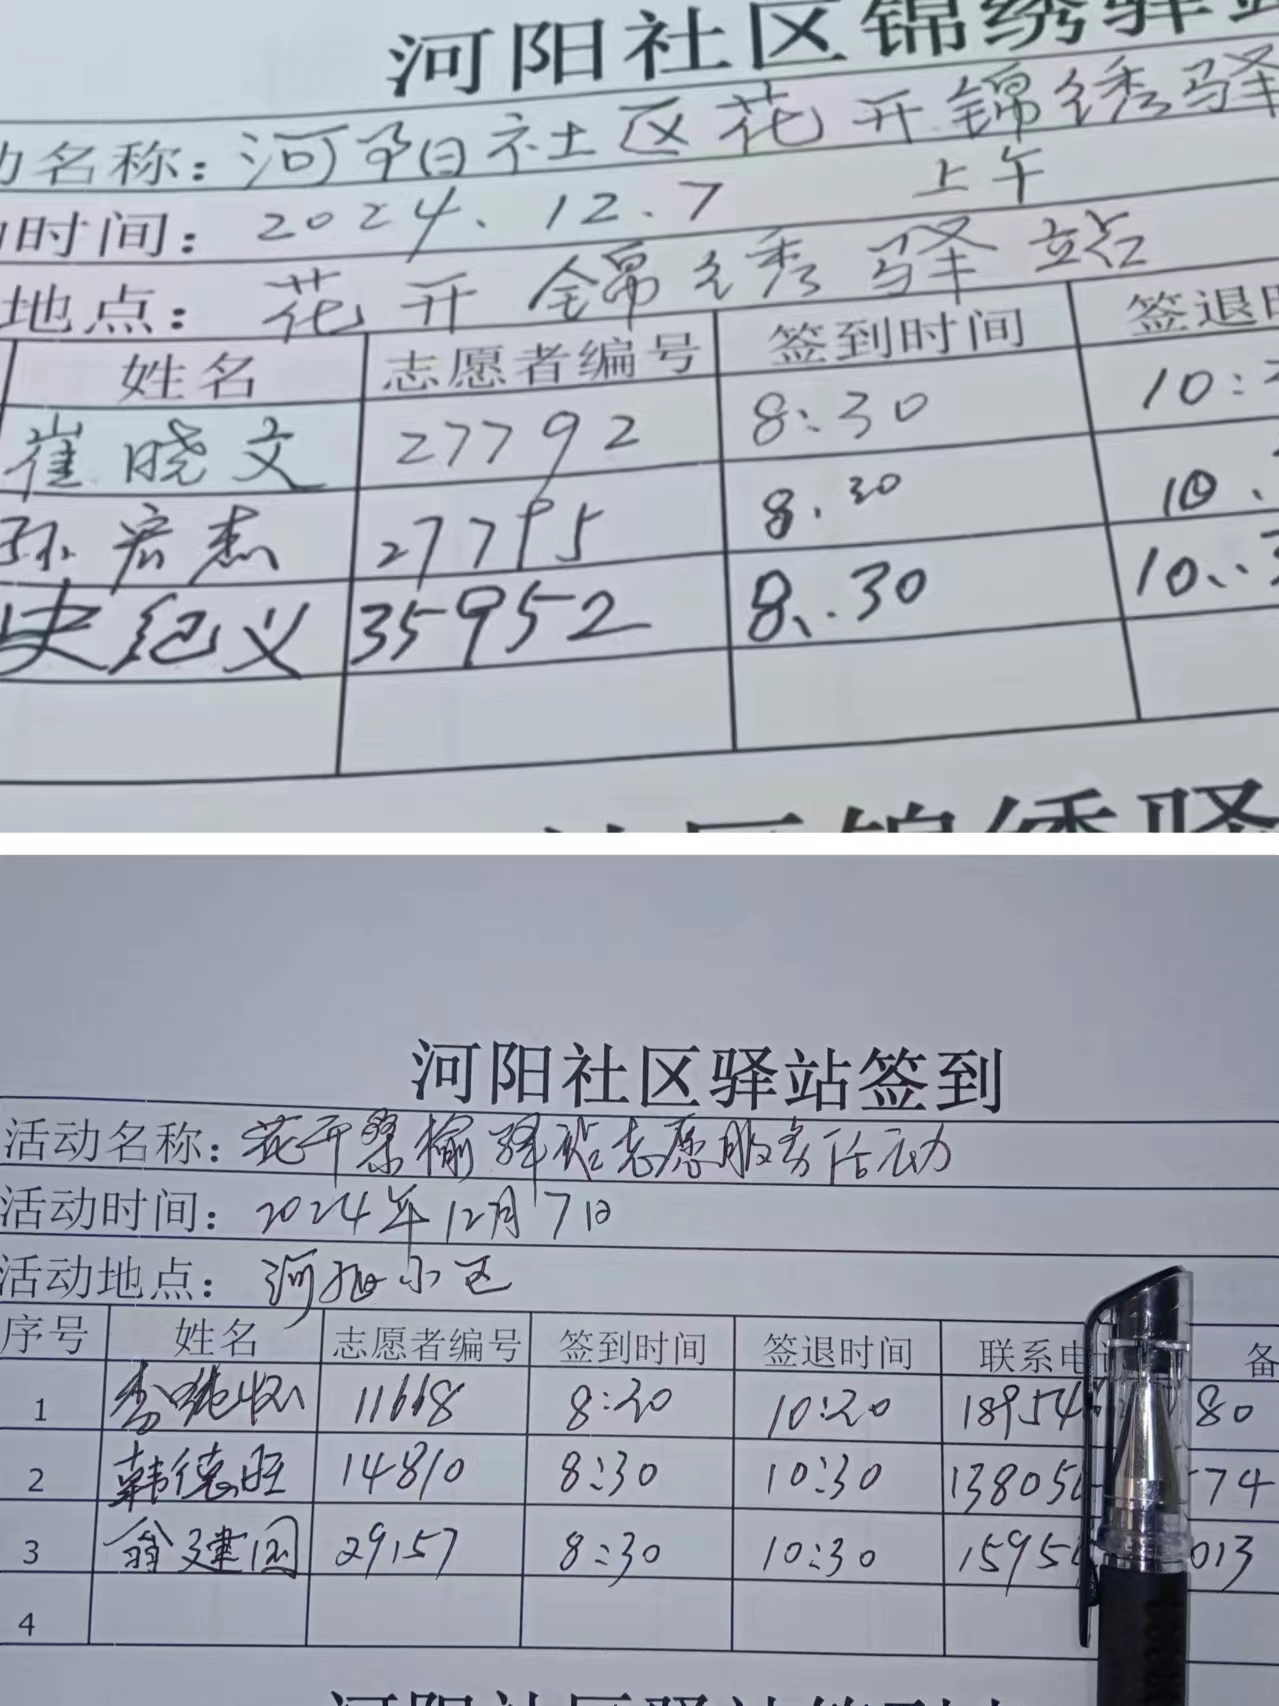 河阳社区锦绣驿
动名称：河阳社区花开锦绣驿
时间：2024.12.7 上午
地点：花开锦绣驿站
姓名 志愿者编号 签到时间 签退
崔晓文 27792 8:30 10:
孙宏杰 27795 8.30 10.
史纪义 35952 8:30 10:
社区锦绣驿
河阳社区驿站签到
活动名称：花开桑榆驿站志愿服务活动
活动时间：2024年12月7日
活动地点：河阳小区
序号 姓名 志愿者编号 签到时间 签退时间 联系电 备
1 李 11668 8:20 10:20 18954 80
2 韩德旺 14810 8:30 10:30 13805 74
3 翁建国 29157 8:30 10:30 1595 013
4
河阳社区驿站签到